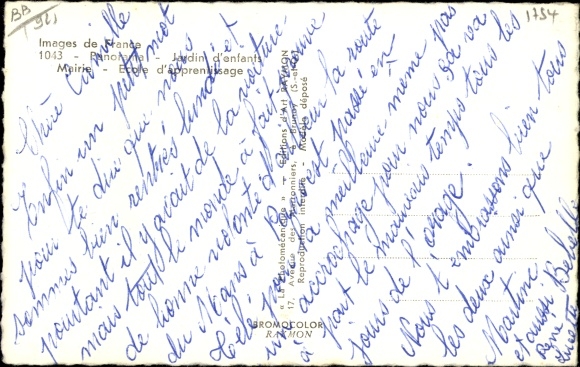 BB
921
1754
Images de France
1043 - Panorama - Jardin d'enfants
Mairie - Ecole d'apprentissage
« La Photomécanique » - Editions d'Art RAYMON
Reproduction interdite - Modèle déposé
BROMOCOLOR
RAYMON
Chère Camille
Enfin un petit mot
pour te dire que nous
sommes bien rentrés lundi et
pourtant il y avait de la voiture
mais tout le monde a fait preuve
de bonne volonté sur la route
du Mans à
tout s'est passé en
même pas
un accrochage pour nous ça va
à part le mauvais temps tous les
jours de l'orage.
Nous t'embrassons bien tous
les deux ainsi que
Martine
et aussi